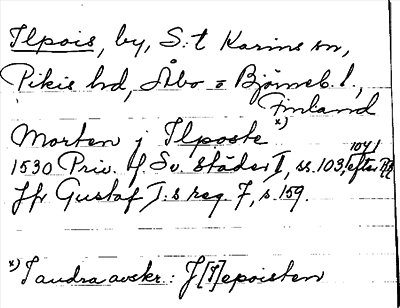 Ilpois, by, S:t Karins sn,
Pikis hd, Åbo o Björneb. l.,
Finland
x)
Morten j Ilposte
1041
1530 Priv. f. Sv. städer I, ss. 103, efter
Jfr Gustaf I:s reg 7, s. 159.
x) I andra avskr.: J[l]epoisten